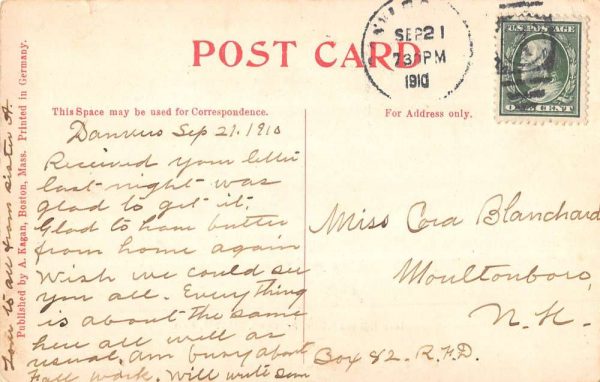 POST CARD
SEP 21
7 30 PM
1910
U.S. POSTAGE
ONE CENT
This Space may be used for Correspondence.
For Address only.
Danvers Sep 21, 1910
Received your letter
last night was
glad to get it.
Glad to have butter
from home again
Wish we could see
you all. Everything
is about the same
here all well as
usual, am busy about
Fall work. Will write soon
Love to all from sister A.
Published by A. Kagan, Boston, Mass. Printed in Germany.
Miss Cora Blanchard
Moultonboro,
N. H.
Box 82. R.F.D.